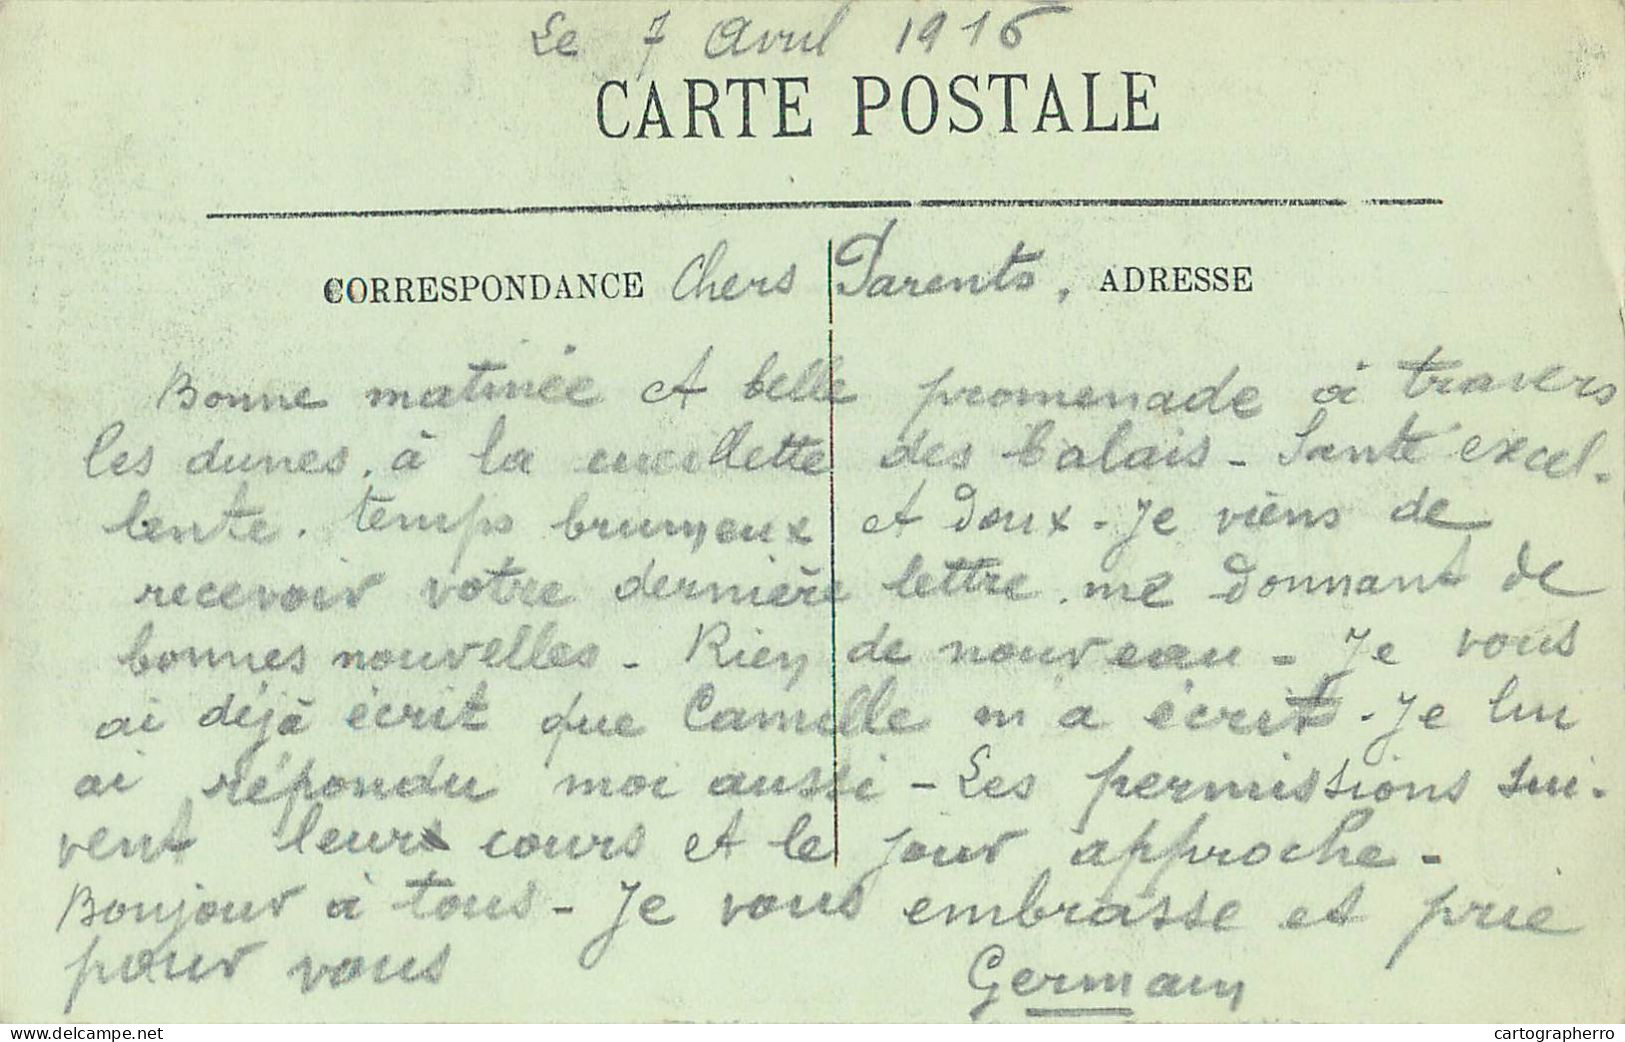 Le 7 Avril 1916
CARTE POSTALE
CORRESPONDANCE Chers Parents, ADRESSE
Bonne matinée et belle promenade à travers
les dunes, à la cueillette des balais - Santé excel-
lente. temps brumeux et doux - Je viens de
recevoir votre dernière lettre. me donnant de
bonnes nouvelles - Rien de nouveau - Je vous
ai déjà écrit que Camille m'a écrit - Je lui
ai répondu moi aussi - Les permissions sui-
vent leurs cours et le jour approche -
Bonjour à tous - Je vous embrasse et prie
pour vous
Germain
cartographerro